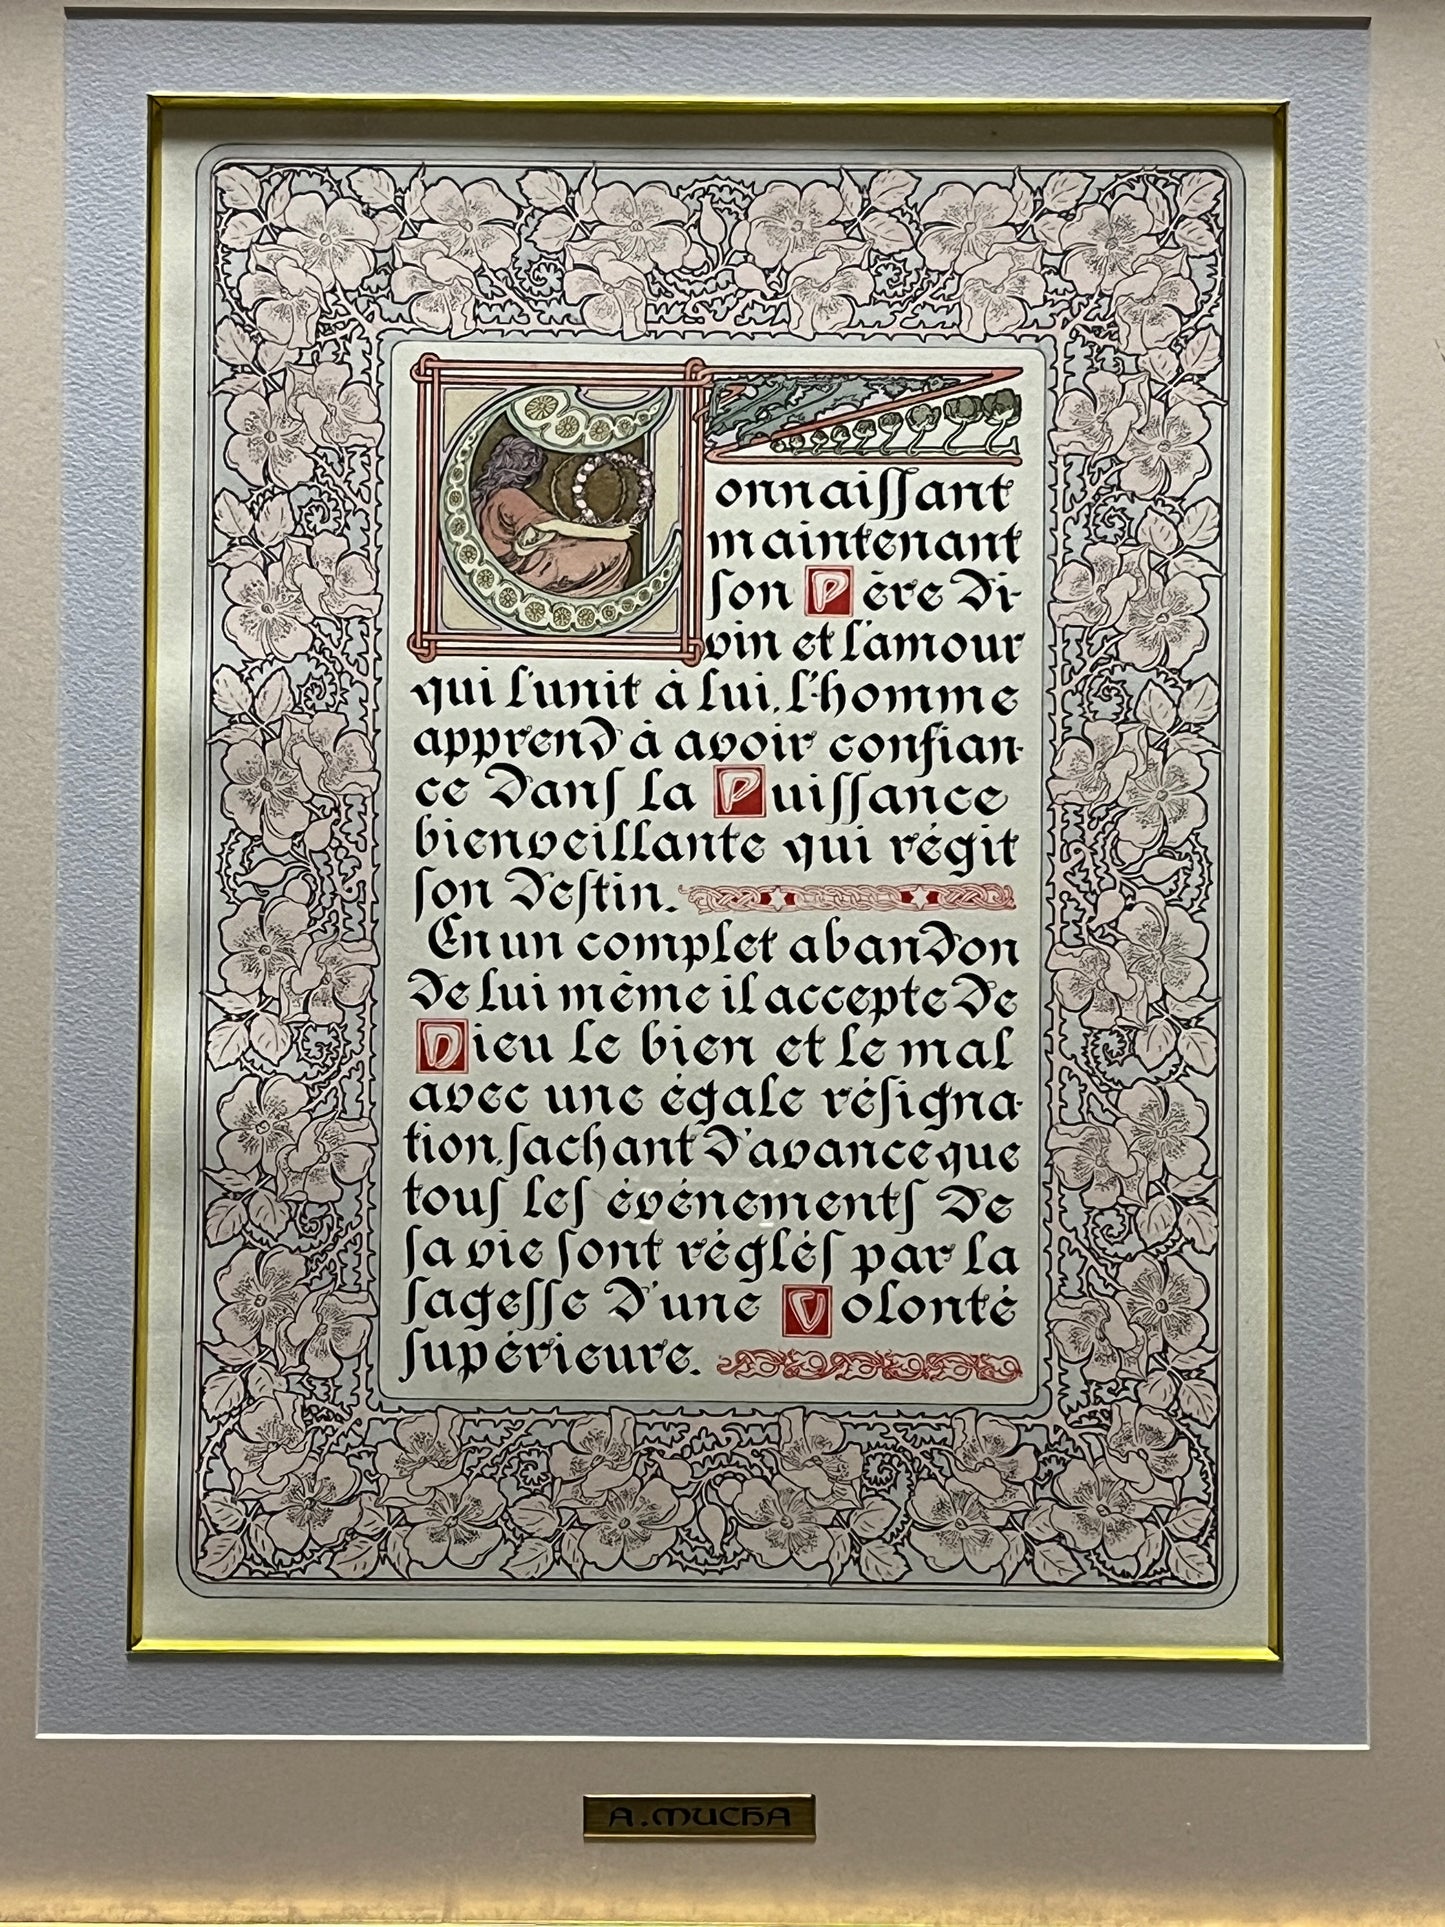 Connaiſſant
maintenant
ſon Père di-
vin et l'amour
qui l'unit à lui, l'homme
apprend à avoir confian-
ce danſ la Puiſſance
bienveillante qui régit
ſon deſtin.
En un complet abandon
de lui même il accepte de
Dieu le bien et le mal
avec une égale réſigna-
tion, ſachant d'avance que
touſ leſ événementſ de
ſa vie ſont régléſ par la
ſageſſe d'une Volonté
ſupérieure.
A. MUCHA